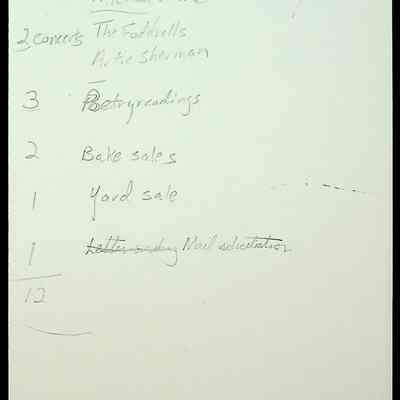 2 concerts The Fodrells
Artie Sherman
3 Poetry readings
2 Bake sales
1 Yard sale
1 Mail solicitation
12